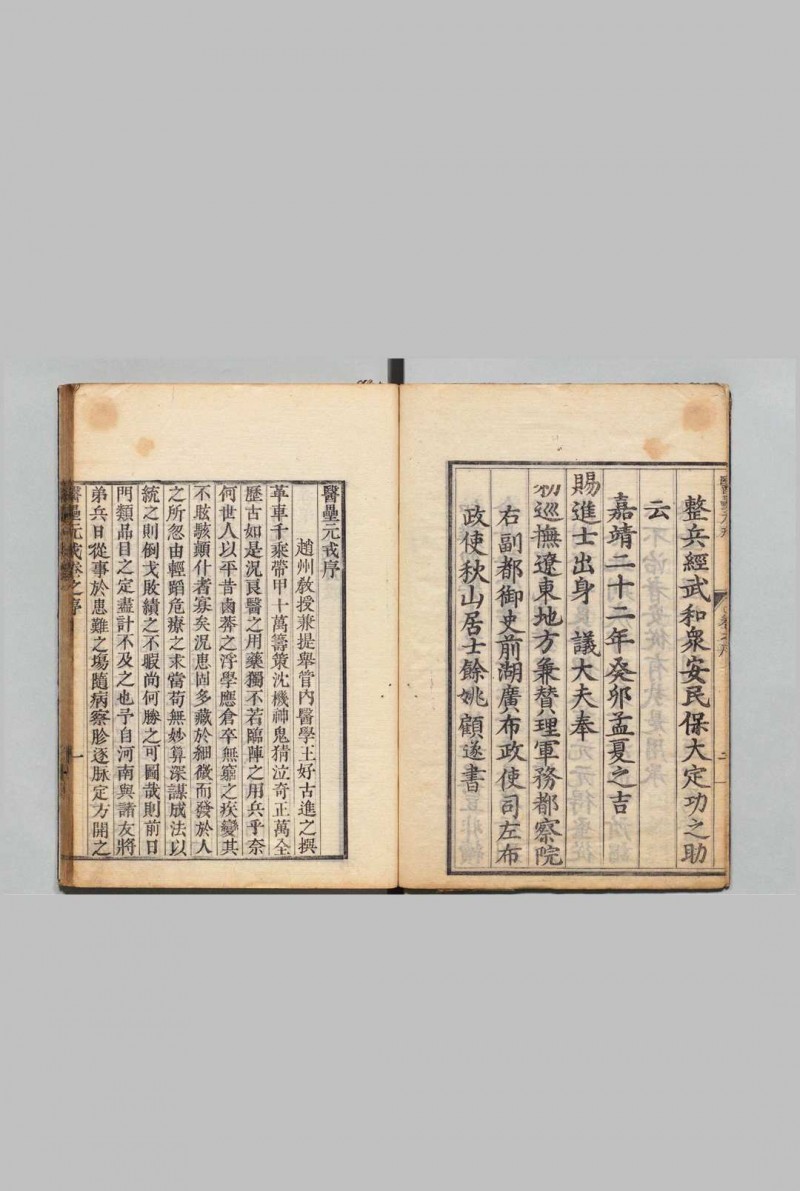 整兵經武和衆安民保大定功之助
云
嘉靖二十二年癸卯孟夏之吉
賜進士出身 議大夫奉
勑巡撫遼東地方兼贊理軍務都察院
右副都御史前湖廣布政使司左布
政使秋山居士餘姚顧遂書
醫壘元戎序
趙州教授兼提舉管内醫學王好古進之撰
革車千乘帶甲十萬籌策沈機神鬼猜泣奇正萬全
歷古如是況良醫之用藥獨不若臨陣之用兵乎奈
何世人以平昔鹵莽之浮學應倉卒無窮之疾變其
不眩駭顛仆者寡矣況患固多藏於細微而發於人
之所忽由輕蹈危療之求當苟無妙算深謀成法以
統之則倒戈敗績之不暇尚何勝之可圖哉則前日
門類品目之定盡計不及之也予自河南與諸友將
弟兵日從事於患難之場隨病察脉逐脉定方開之
醫壘元戎卷之序
一